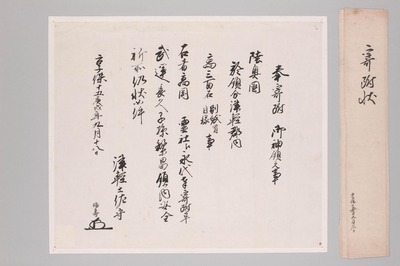 奉寄附 御神領之事
陸奥国
於領分津軽郡内
高三百石 別紙有目録 事
右者為因 霊社永代奉寄附畢
武運長久子孫繁昌領内安全
祈所仍状如件
享保十五庚戌年九月十八日
津軽土佐守
寄附状